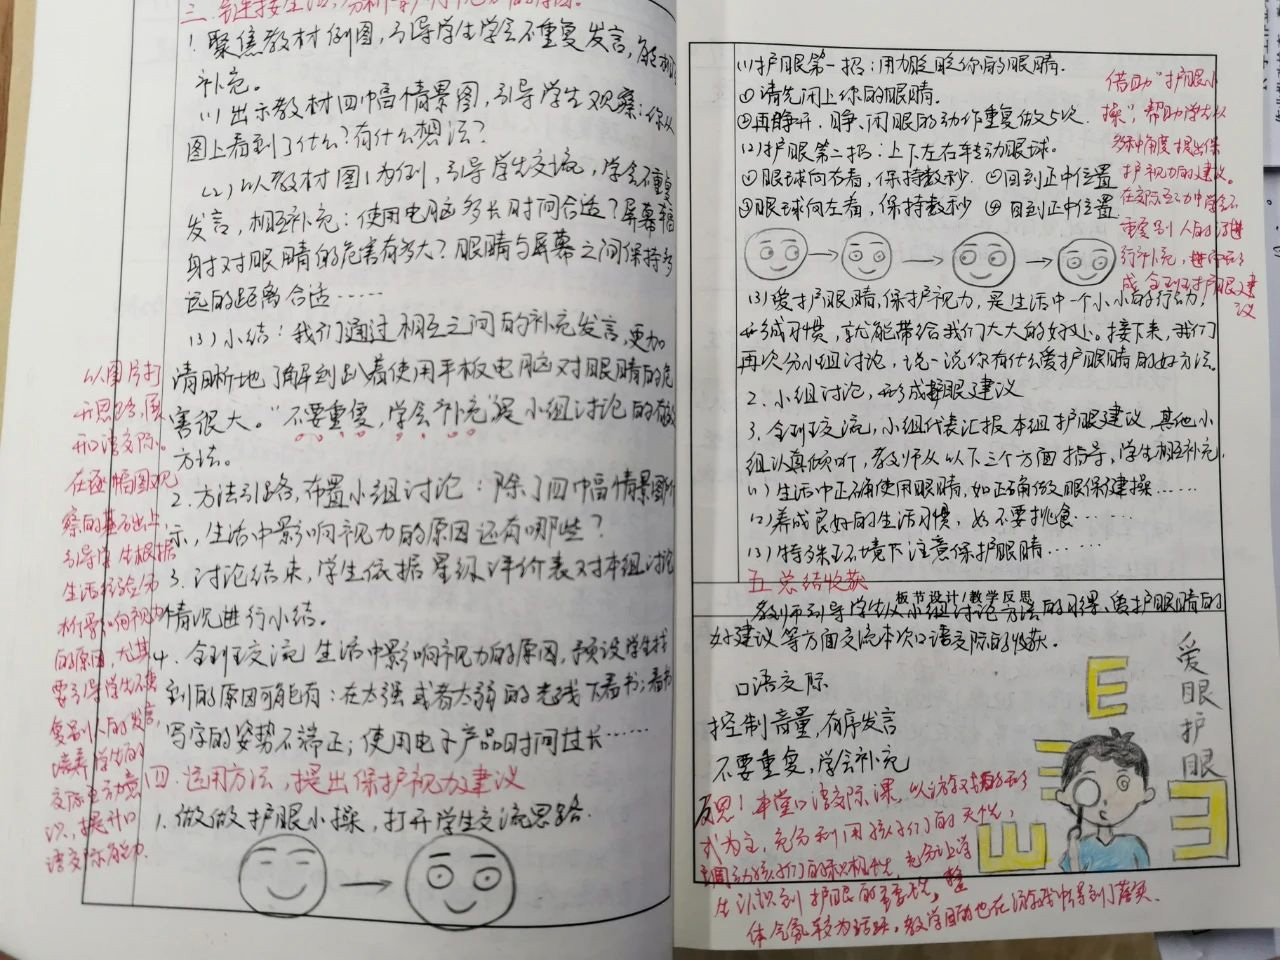 1.聚焦教材例图,引导学生学会不重复发言,能相互
补充。
(1)出示教材四幅情景图,引导学生观察:你从
图上看到了什么?有什么想法?
(2)以教材图1为例,引导学生交流,学会不重复
发言,相互补充:使用电脑多长时间合适?屏幕辐
射对眼睛的危害有多大?眼睛与屏幕之间保持多
远的距离合适……
(3)小结:我们通过相互之间的补充发言,更加
清晰地了解到趴着使用平板电脑对眼睛的危
害很大。“不要重复,学会补充”是小组讨论的有效
方法。
2.方法引路,布置小组讨论:除了四幅情景图所
示,生活中影响视力的原因还有哪些?
3.讨论结束,学生依据星级评价表对本组讨论
情况进行小结。
4.全班交流生活中影响视力的原因,预设学生找
到的原因可能有:在太强或者太弱的光线下看书;看书
写字的姿势不端正;使用电子产品时间过长……
四.运用方法,提出保护视力建议
1.做做护眼小操,打开学生交流思路.
以图片打
开思路,展
开口语交际。
在逐幅图观
察的基础上,
引导学生根据
生活经验分
析影响视力
的原因,尤其
要引导学生不重
复别人的发言,
培养学生的
交际互动意
识,提升口
语交际能力.
(1)护眼第一招:用力眨眨你的眼睛.
①请先闭上你的眼睛.
②再睁开,睁、闭眼的动作重复做5次.
(2)护眼第二招:上下左右转动眼球。
①眼球向右看,保持数秒 ②回到正中位置
③眼球向左看,保持数秒 ④回到正中位置
(3)爱护眼睛,保护视力,是生活中一个小小的行动!
形成习惯,就能带给我们大大的好处。接下来,我们
再次分小组讨论,说一说你有什么爱护眼睛的好方法。
2.小组讨论,形成护眼建议
3.全班交流,小组代表汇报本组护眼建议,其他小
组认真倾听,教师从以下三个方面指导,学生相互补充.
(1)生活中正确使用眼睛,如正确做眼保健操……
(2)养成良好的生活习惯,如不要挑食……
(3)特殊环境下注意保护眼睛……
借助“护眼小
操”,帮助学生从
多种角度提出保
护视力的建议。
在交际互动中学会不
重复别人的话进
行补充,进而形
成全班护眼建
议
五.总结收获
板书设计/教学反思
教师引导学生从小组讨论方法的习得、爱护眼睛的
好建议等方面交流本次口语交际的收获.
口语交际
控制音量,有序发言
不要重复,学会补充
爱
眼
护
眼
E
反思:本堂口语交际课,以游戏形
式为主,充分利用孩子们的天性,
调动孩子们的积极性,充分让学
生认识到护眼的重要性,整
体气氛较为活跃,教学目的也在游戏中得到了落实.